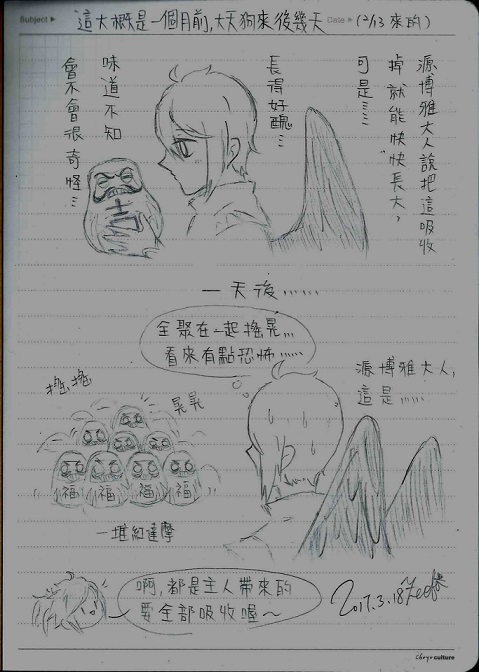 Subject▶ 這大概是一個月前,大天狗來後幾天 Date▶ (2/13來的)
源博雅大人說把這吸收
掉就能快快長大,
可是⋯⋯
長得好醜⋯
味道不知
會不會很奇怪⋯
一天後⋯⋯
全聚在一起搖晃⋯
看來有點恐怖⋯⋯
源博雅大人,
這是⋯⋯
搖搖
晃晃
吉
福 福 福 福
一堆紅達摩
啊,都是主人帶來的
要全部吸收喔~
2017.3.18
Choye culture